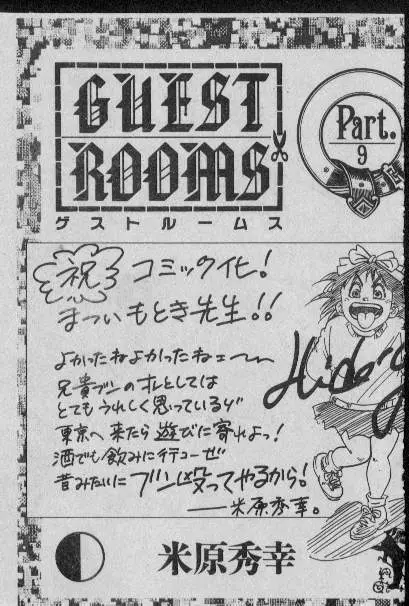 GUEST
ROOMS
Part.
9
ゲストルームス
祝 コミック化!
まついもとき先生!!
よかったねよかったねェ〜
兄貴ブンのオレとしては
とてもうれしく思っているゾ
東京へ来たら遊びに寄れよっ!
酒でも飲みに行コーゼ
昔みたいにブン殴ってやるから!
──米原秀幸。
Hide
米原秀幸